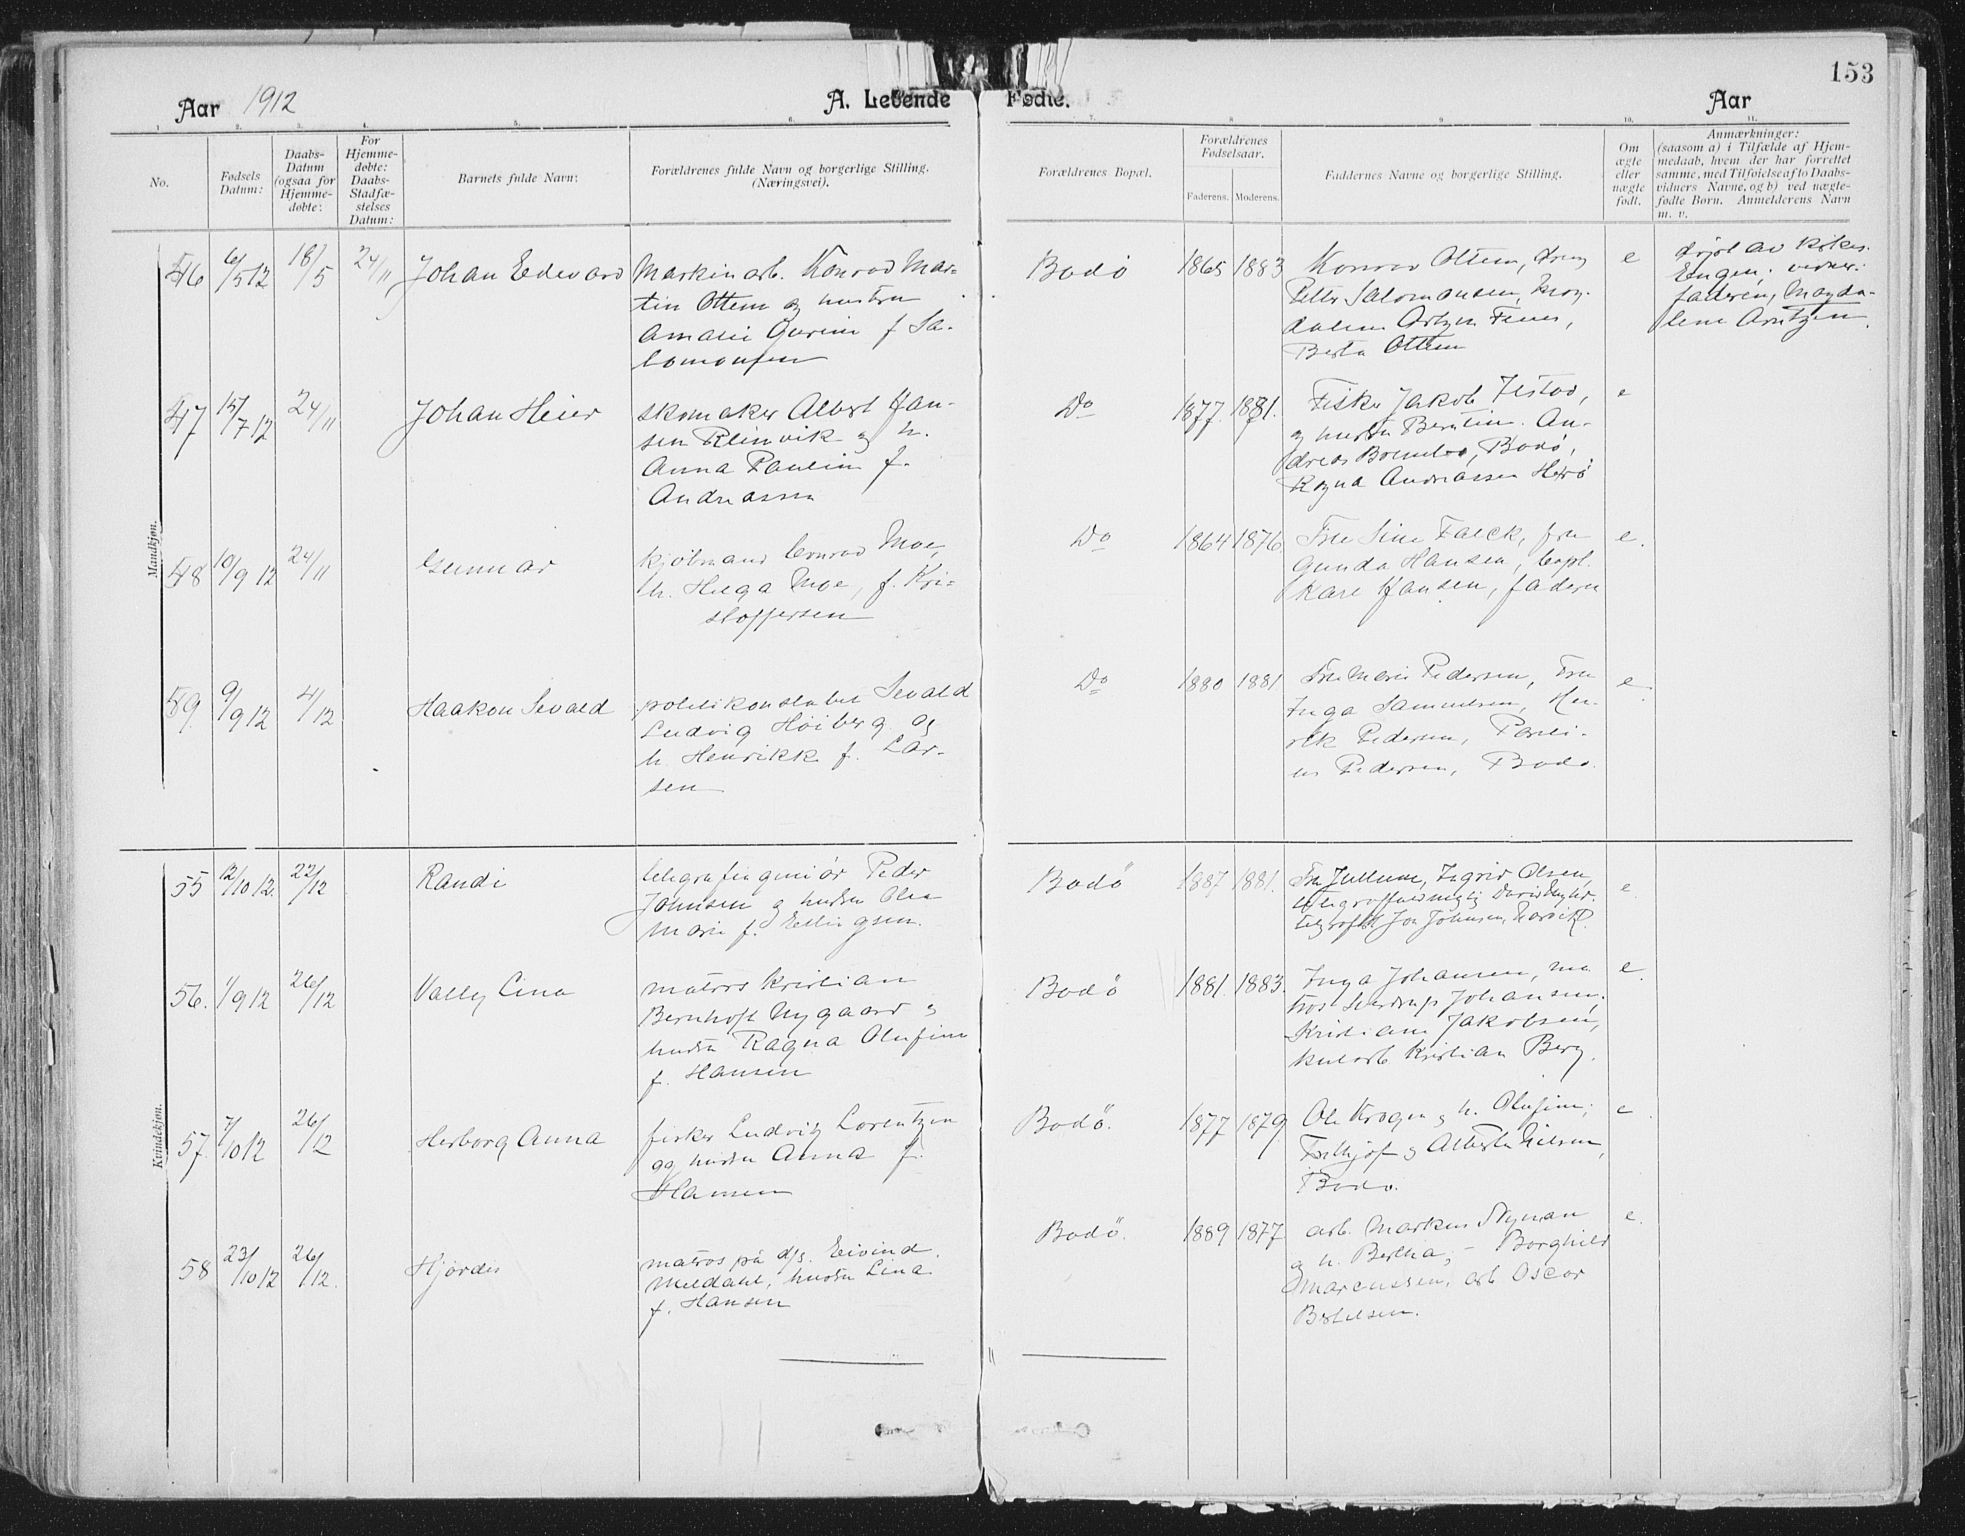 153
Aar 1912
A. Levende
Fødte.
Aar
1.
2.
3.
4.
5.
6.
7.
8
9
10.
11.
No.
Fødsels
Datum:
Daabs-
Datum
(ogsaa for
Hjemme-
døbte:
For
Hjemme-
døbte:
Daabs-
Stadfæ-
stelses
Datum:
Barnets fulde Navn:
Forældrenes fulde Navn og borgerlige Stilling.
(Næringsvei).
Forældrenes Bopæl.
Forældrenes
Fødselsaar.
Faderens.
Moderens.
Faddernes Navne og borgerlige Stilling.
Om
ægte
eller
uægte
født.
Anmærkninger:
(saasom a) i Tilfælde af Hjem-
medaab, hvem der har forrettet
samme, med Tilføielse af to Daabs-
vidners Navne, og b) ved uægte-
fødte Børn. Anmelderens Navn
m. v.
Mandkjøn.
46 6/5 12 18/5 24/11 Johan Edevard
Markinarb. Konrad Mar-
tin Ottem og hustru
Amalie Gurine f Sa-
lomonsen
Bodö 1865 1883
Konrad Ottem,
Petter Salomonsen, Mag-
dalene
Berta Ottem
e
døpt av
Engen;
faderen, Magda-
lene Arntzen.
47 15/7 12 24/11 Johan Heier
skomaker Albert Han-
sen Reinvik og h.
Anna Pauline f.
Andreassen
Do 1877. 1881.
Fisker Jakob
og hustru Berntine. An-
dreas Bodö,
Ragna Andreassen Herö
e
48 10/9 12 24/11 Gunnar
kjöbmand Conrad Moe,
h. Helga Moe, f. Kri-
stoffersen
Do 1864 1876.
Fru Sine Falck, fru
Gunda Hansen, Capt.
Kare Hansen, faderen
e.
49. 9/9 12 4/12 Haakon Sevald
politikonstabel Sevald
Ludvig Höiberg og
h. Henrikke f. Lar-
sen
Do 1880 1881
Fru Marie Pedersen, Fru
Inga Samuelsen, Hen-
rik Pedersen,
Pedersen, Bodö.
e.
Kvindekjøn.
55 12/10 12. 22/12 Randi
telegrafingeniör Peder
Johnsen og hustru Olea
Marie f. Ellingsen.
Bodö 1887 1881.
Fru Jullum, Ingrid Olsen,
telegraffuldmægtig David
Jon Johnsen, Narvik.
e
56. 1/9 12 26/12 Vally Lina
matros Kristian
Bernhoft Nygaard og
hustru Ragna Olufine
f. Hansen
Bodö 1881. 1883.
Inga Johansen, ma-
tros Johansen,
Kristiane Jakobsen,
kularb Kristian Berg.
e.
57. 7/10 12 26/12 Herborg Anna
fisker Ludvig Lorentzen
og hustru Anna f.
Hansen
Bodö. 1877 1879
Ole Krogen og h. Olufine;
Fridtjof og Alberte Nilsen,
Bodö.
e
58 23/10 12 26/12. Hjördis
matros på d/s. Eivind
Meldahl, hustru Lina
f. Hansen
Bodö. 1889 1877
arb. Markus Nyman
og h. Bertha; - Borghild
Marcussen, arb Oscar
Bertelsen.
e.